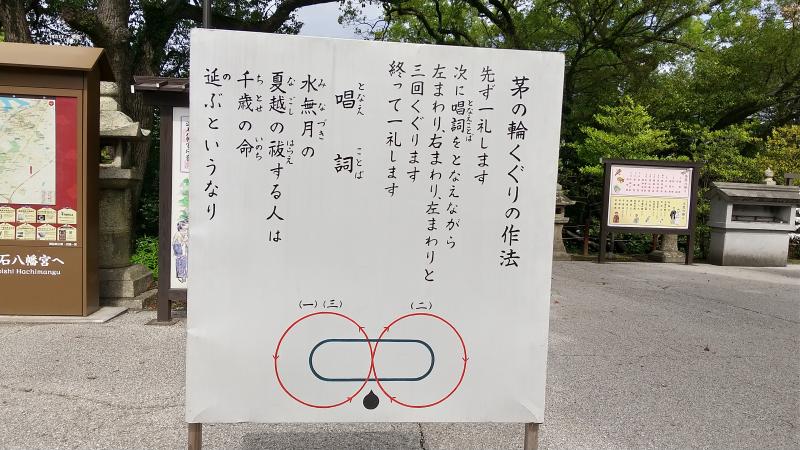 茅の輪くぐりの作法
先ず一礼します
次に唱詞をとなえながら
となえことば
左まわり、右まわり、左まわりと
三回くぐります
終って一礼します
唱詞
となえ ことば
水無月の
みなづき
夏越の祓する人は
なごし はらえ
千歳の命
ちとせ いのち
延ぶというなり
の
(一)(三)
(二)
石八幡宮へ
oishi Hachimangu